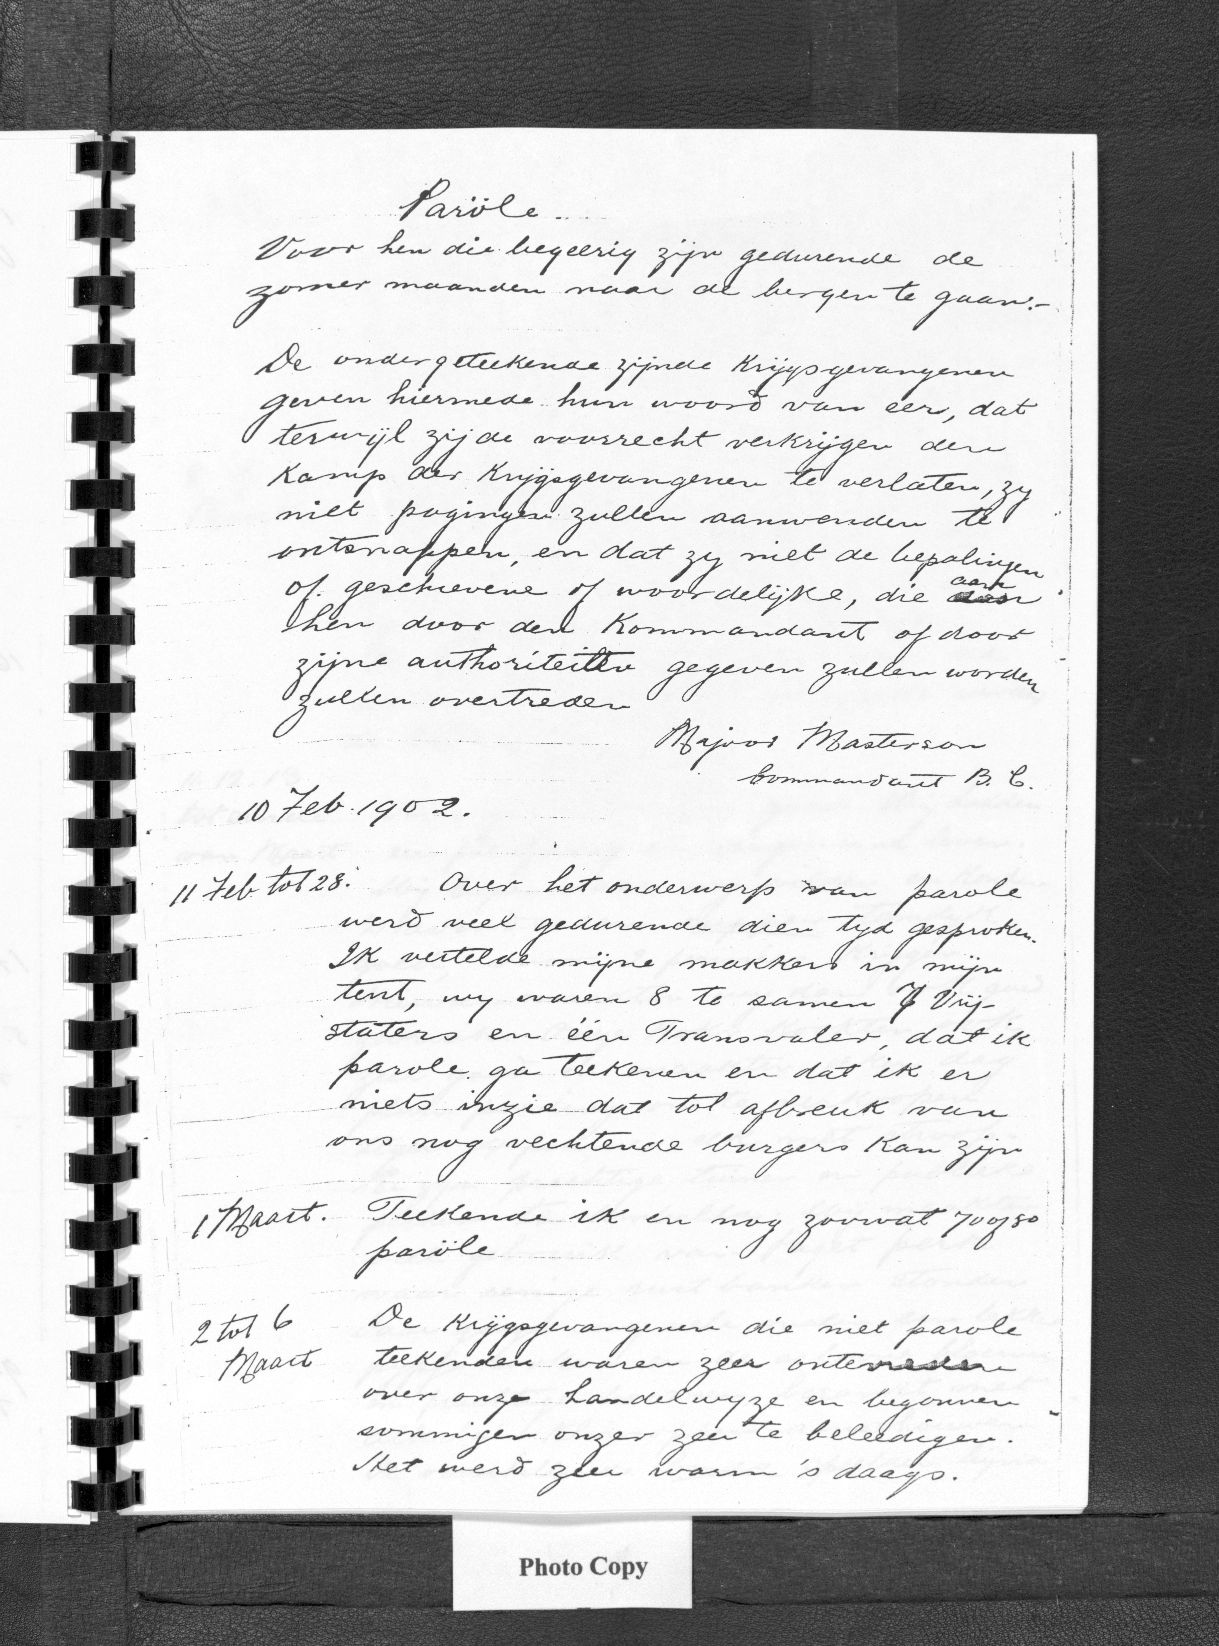 Paröle
Voor hen die begeerig zijn gedurende de
zomer maanden naar de bergen te gaan:-
De ondergeteekende zijnde Krijgsgevangenen
geven hiermede hun woord van eer, dat
terwijl zij de voorrecht verkrijgen den
Kamp der Krijgsgevangenen te verlaten, zy
niet pogingen zullen aanwenden te
ontsnappen, en dat zy niet de bepalingen
of geschrevene of woordelijke, die aan
hen door den Kommandant of door
zijne authoriteiten gegeven zullen worden
zullen overtreden
Majoor Masterson
Commandant B. C.
10 Feb. 1902.
11 Feb tot 28. Over het onderwerp van parole
werd veel gedurende dien tyd gesproken.
Ik vertelde mijne makkers in mijn
tent, wy waren 8 te samen 7 Vrij-
staters en één Transvaler, dat ik
parole ga teekenen en dat ik er
niets inzie dat tot afbreuk van
ons nog vechtende burgers kan zijn
1 Maart. Teekende ik en nog zoowat 70 of 80
paröle
2 tot 6 De Krijgsgevangenen die niet parole
Maart teekenden waren zeer ontevreden
over onze handelwyze en begonnen
sommigen onzer zeer te beleedigen.
Het werd zeer warm 's daags.
Photo Copy